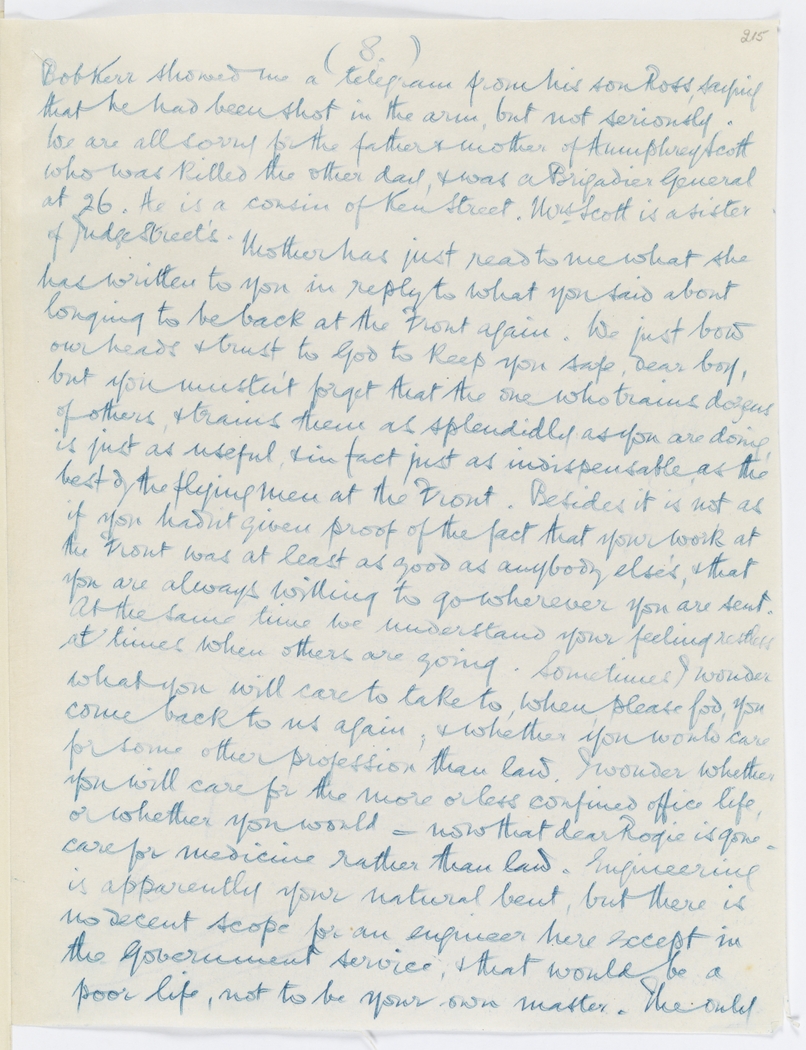 215
(8.)
Bob Kerr showed me a telegram from his son Ross, saying
that he had been shot in the arm, but not seriously.
We are all sorry for the father & mother of Humphrey Scott
who was killed the other day, & was a Brigadier General
at 26. He is a cousin of Ken Street. Mrs Scott is a sister
of Judge Street's. Mother has just read to me what she
has written to you in reply to what you said about
longing to be back at the Front again. We just bow
our heads & trust to God to keep you safe, dear boy,
but you mustn't forget that the one who trains dozens
of others, & trains them as splendidly as you are doing,
is just as useful, & in fact just as indispensable, as the
best of the flying men at the Front. Besides it is not as
if you hadn't given proof of the fact that your work at
the Front was at least as good as anybody else's, & that
you are always willing to go wherever you are sent.
At the same time we understand your feeling restless
at times when others are going. Sometimes I wonder
what you will care to take to, when, please God, you
come back to us again; & whether you would care
for some other profession than law. I wonder whether
you will care for the more or less confined office life,
or whether you would – now that dear Rogie is gone –
care for medicine rather than law. Engineering
is apparently your natural bent, but there is
no decent scope for an engineer here except in
the Government service, & that would be a
poor life, not to be your own master. The only